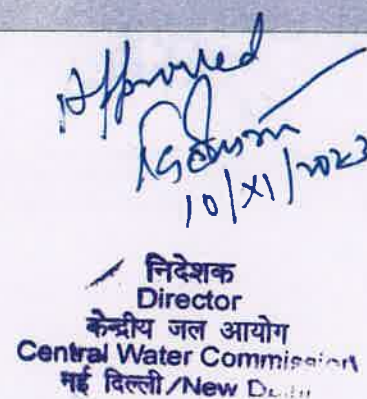 Approved
10/XI/2023
निदेशक
Director
केन्द्रीय जल आयोग
Central Water Commission
नई दिल्ली/New Delhi